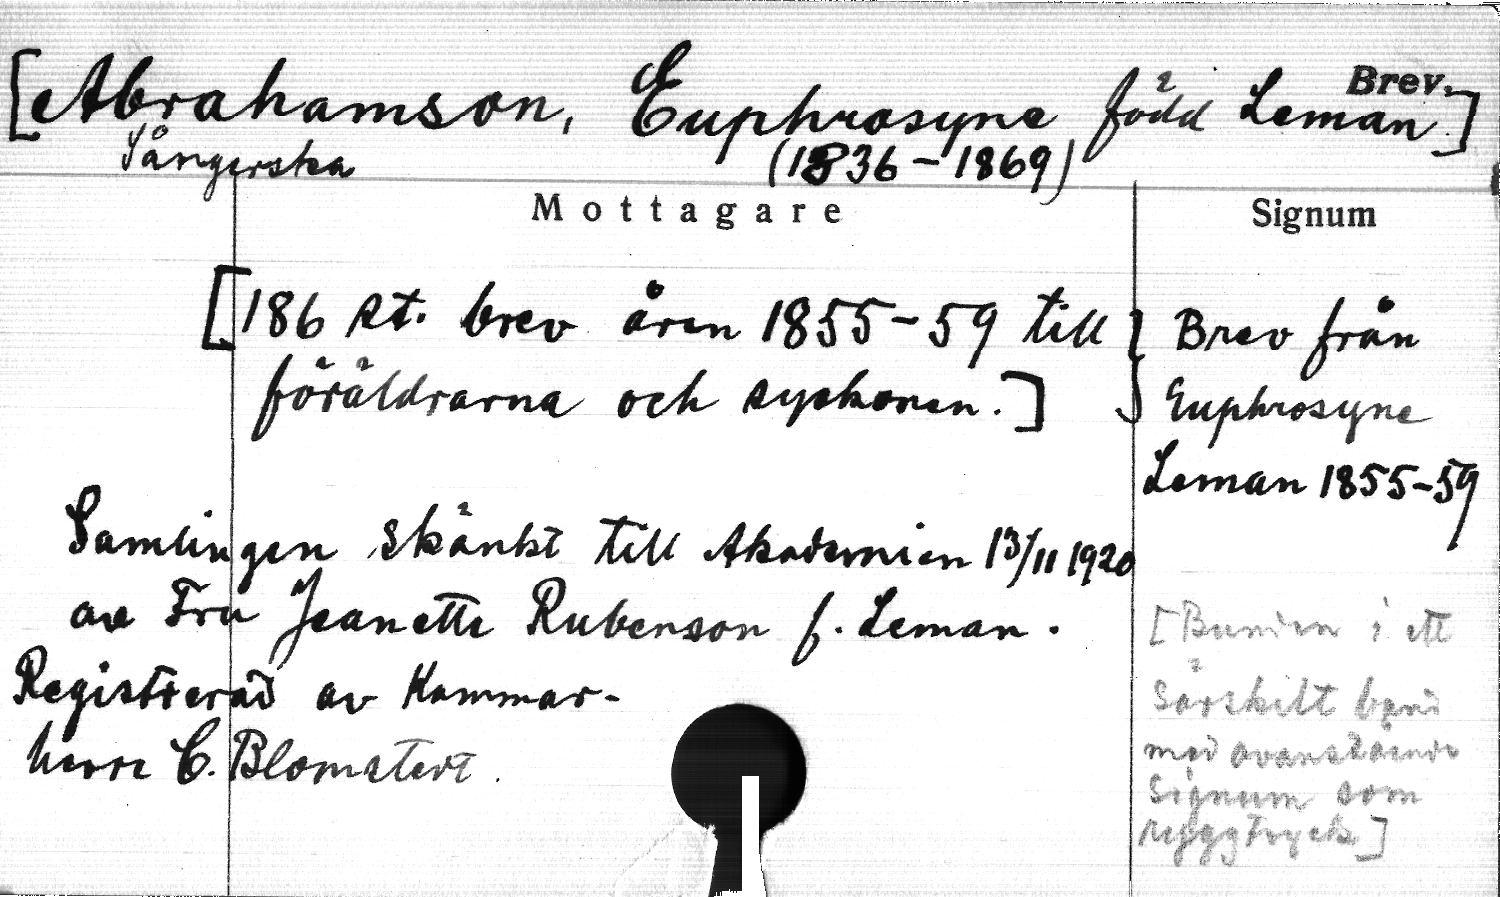 Brev.
[Abrahamson, Euphrosyne född Leman.]
Sångerska (1836–1869)
Mottagare
Signum
[186 st. brev åren 1855–59 till
föräldrarna och syskonen.]
Brev från
Euphrosyne
Leman 1855–59
Samlingen skänkt till Akademien 13/11 1920
av Fru Jeanette Rubenson f. Leman.
Registrerad av Kammar-
herre C. Blomstert.
[Bunden i ett
särskilt band
med ovanstående
Signum som
ryggtryck]